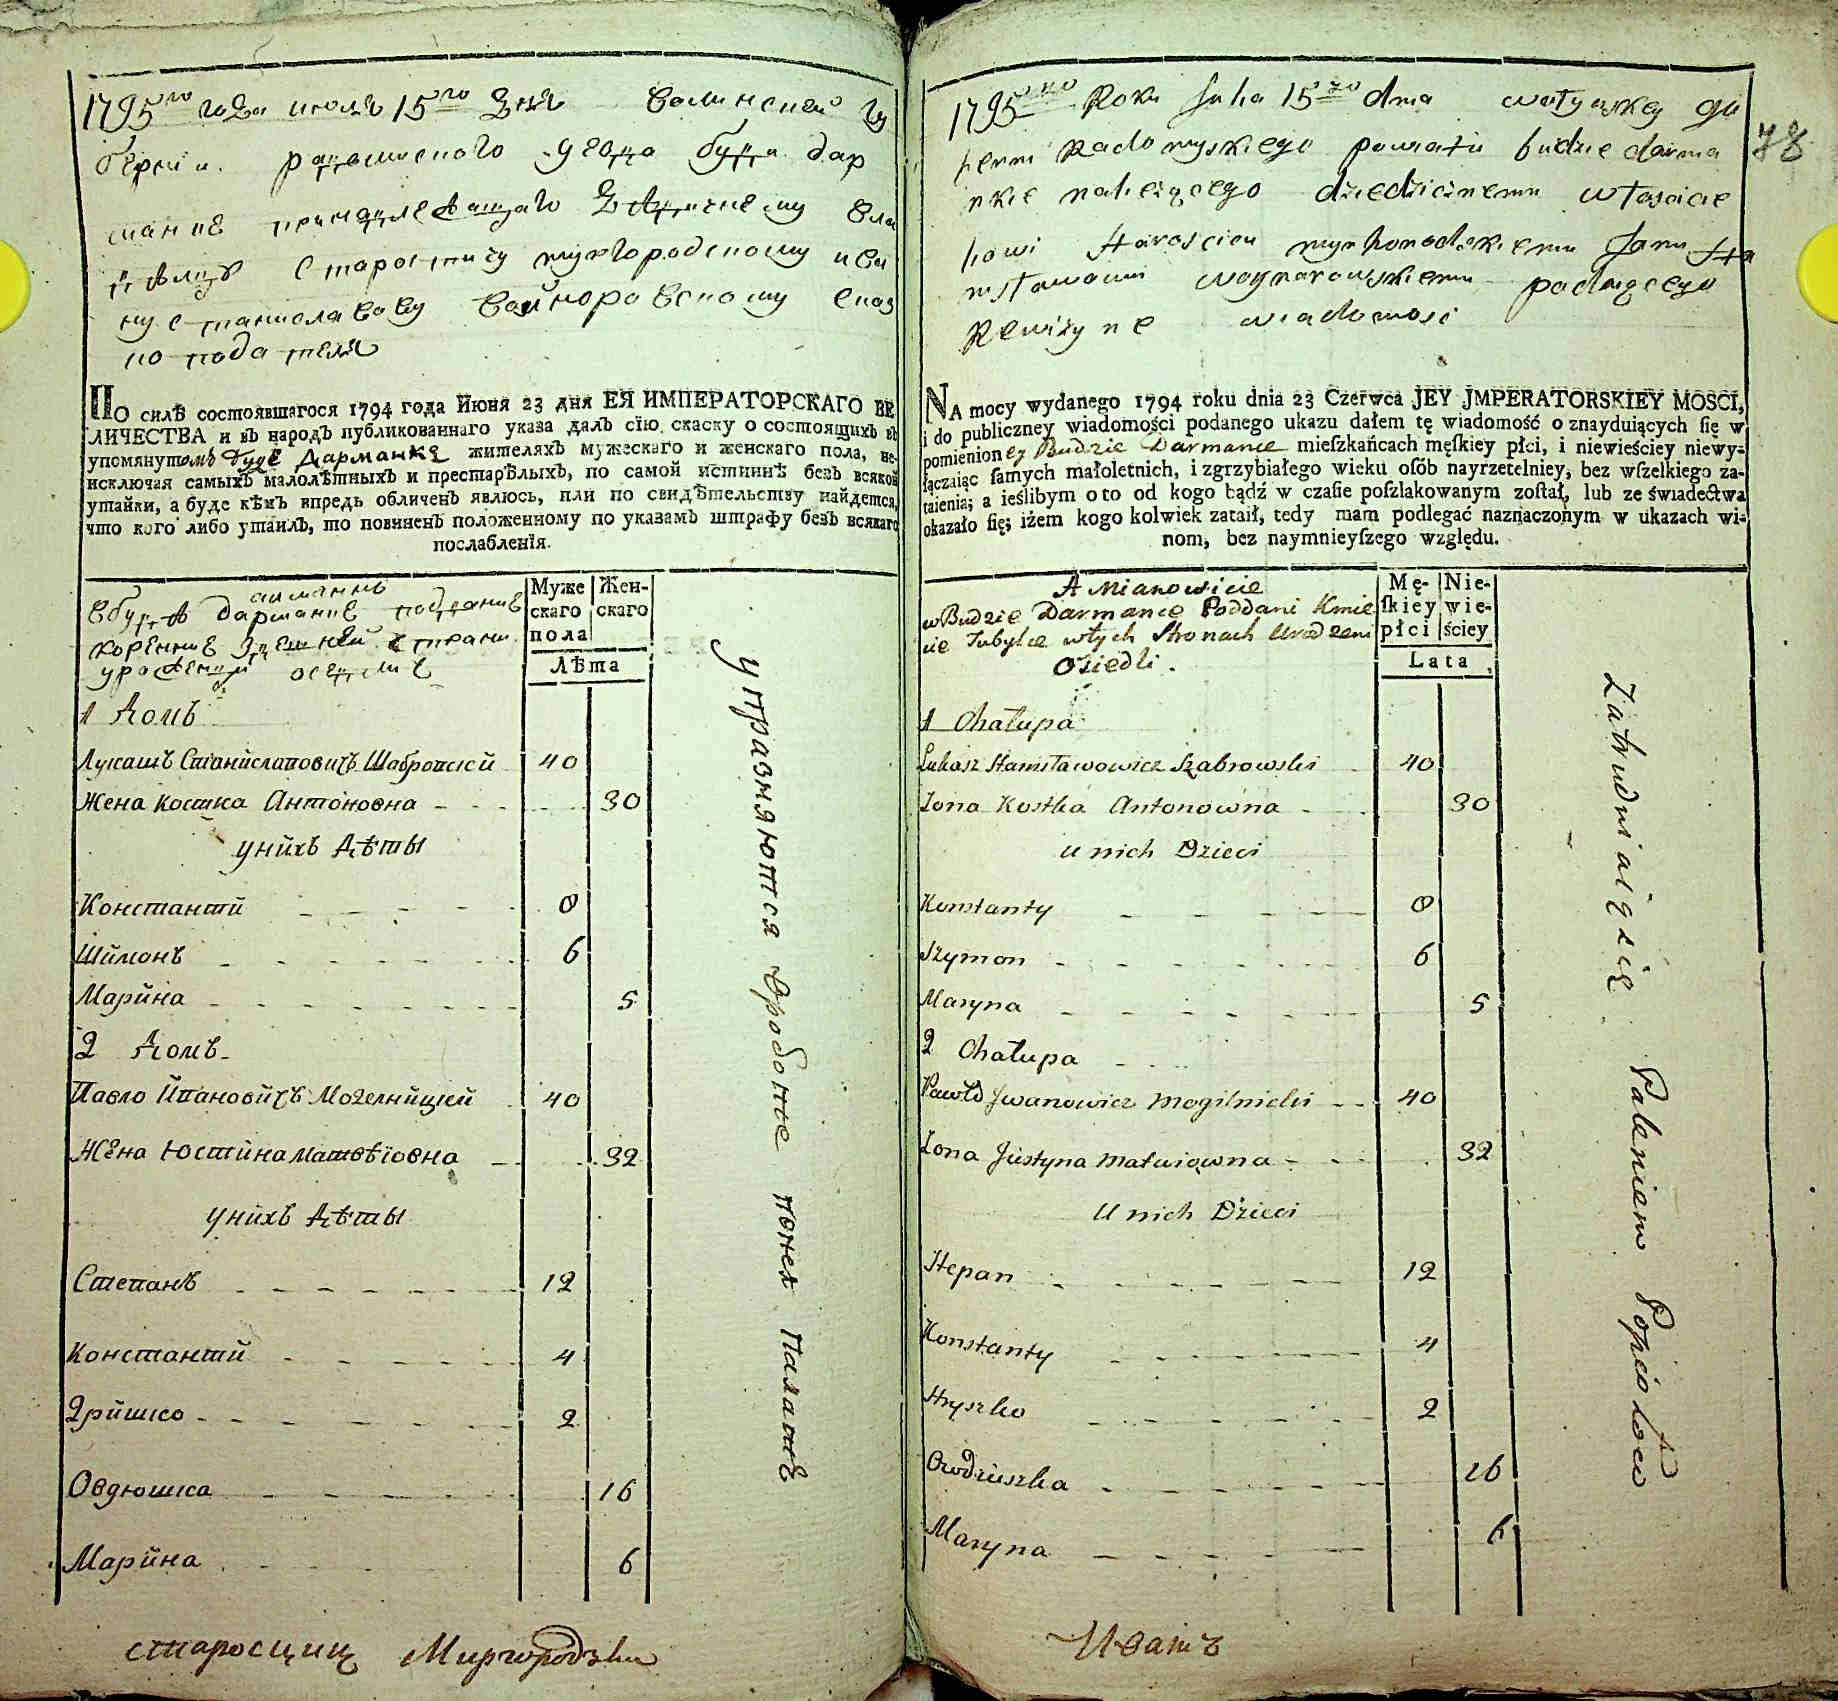 1795го года июля 15го дня Волинской гу
бернии радомисного уезда буда дар
манка принадлежащаго дедичному вла
стелцу старостичу миргородскому ива
ну станиславову войнаровскому сказ
ко подателя
По силѣ состоявшагося 1794 года Июня 23 дня ЕЯ ИМПЕРАТОРСКАГО ВЕ
ЛИЧЕСТВА и въ народъ публикованнаго указа далъ сїю скаску о состоящихъ въ
упомянутомъ буде Дарманке жителяхъ мужескаго и женскаго пола, не
исключая самыхъ малолѣтныхъ и престарѣлыхъ, по самой истиннѣ безъ всякой
утайки, а буде кѣмъ впредь обличенъ явлюсь, или по свидѣтельству найдется,
что кого либо утаилъ, то повиненъ положенному по указамъ штрафу безъ всякаго
послабленїя.
а именно
вбуде дарманке подание
коренние здешней страни
урожений оседлие
Муже
скаго
пола
Жен-
скаго
Лѣта
1 Домъ
Лукашъ Станиславовичъ Шабровскій 40
Жена костка Антоновна 30
унихъ дѣты
Константій 8
Шимонъ 6
Марйна 5
2 Домъ
Павло Ивановичъ Могелницкій 40
Жена Юстина Матвѣіовна 32
унихъ дѣты
Степанъ 12
Константій 4
Гришко 2
Овдюшка 16
Марйна 6
упразняются вробоне попел палате
старосциц Миргородзки
78
1795go Roku Julia 15go dnia wołynskey gu
bernii Radomyskiego powiatu budzie darma
nkie należącego dziedzicznemu własicie
lowi Staroscicu myrhorodskiemu Janu Sta
nisławowi woynarowskiemu podaiącego
Rewizyne wiadomosci
Na mocy wydanego 1794 roku dnia 23 Czerwca JEY JMPERATORSKIEY MOSCI,
i do publiczney wiadomości podanego ukazu dałem tę wiadomość o znayduiących się w
pomienioney Budzie Darmanie mieſzkańcach męſkiey płci, i niewieściey niewy-
łączaiąc ſamych małoletnich, i zgrzybiałego wieku oſób nayrzetelniey, bez wſzelkiego za-
taienia; a ieślibym o to od kogo bądź w czaſie poſzlakowanym zoſtał, lub ze świadectwa
okazało ſię; iżem kogo kolwiek zataił, tedy mam podlegać naznaczonym w ukazach wi-
nom, bez naymnieyſzego względu.
A Mianowicie
w Budzie Darmance Poddani Kmie
cie Tubylce w tych Stronach Urodzeni
Osiedli.
Mę-
ſkiey
płci
Nie-
wie-
ściey
Lata
1 Chałupa
Łukasz Stanisławowicz Szabrowski 40
Zona Kostka Antonowna 30
u nich Dzieci
Konstanty 8
Szymon 6
Maryna 5
2 Chałupa
Pawło Jwanowicz Mogilnicki 40
Zona Justyna Matwiowna 32
U nich Dzieci
Stepan 12
Konstanty 4
Hryszko 2
Owdziuszka 16
Maryna 6
Zatrudniaiąsię Paleniem Popiołow
Иванъ